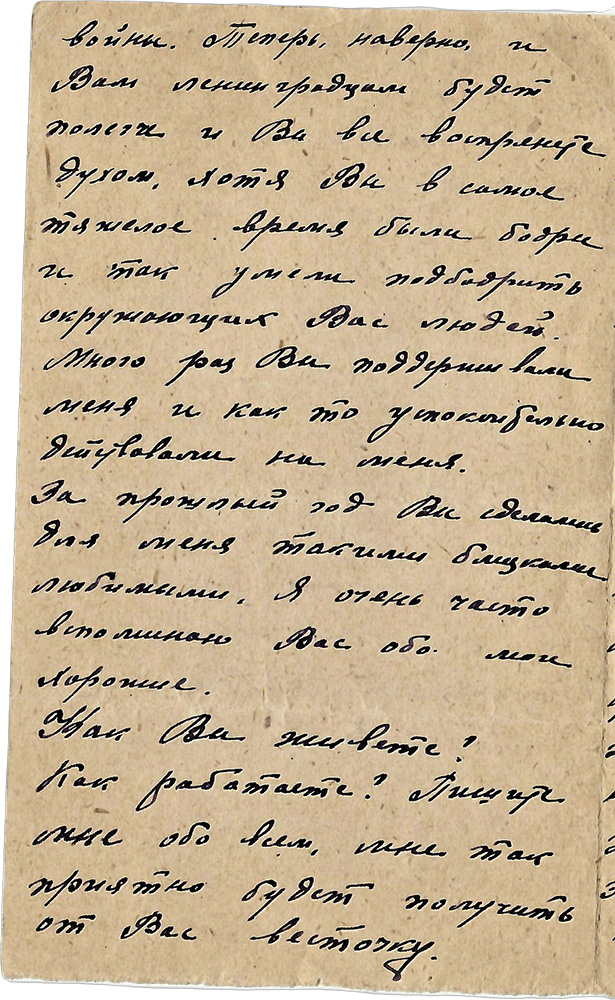 войны. Теперь, наверно, и
Вам ленинградцам будет
полегче и Вы все воспрянете
духом, хотя Вы в самое
тяжелое время были бодры
и так умели подбодрить
окружающих Вас людей.
Много раз Вы поддерживали
меня и как то успокоительно
действовали на меня.
За прошлый год Вы сделались
для меня такими близкими
любимыми. Я очень часто
вспоминаю Вас обо мои
хорошие.
Как Вы живете?
Как работаете? Пишите
мне обо всем, мне так
приятно будет получить
от Вас весточку.